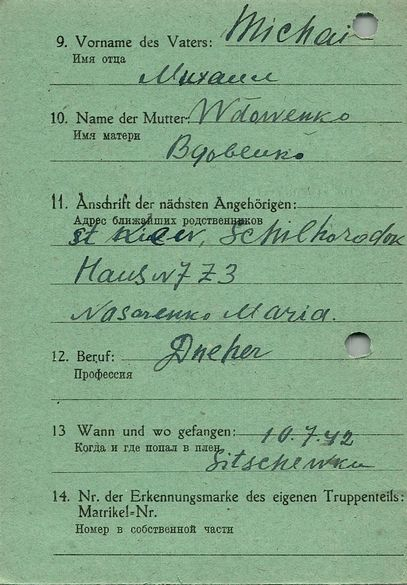 9. Vorname des Vaters: Michai
Имя отца
Михаил
10. Name der Mutter: Wdowenko
Имя матери
Вдовенко
11. Anschrift der nächsten Angehörigen:
Адрес ближайших родственников
st Kiew, Schilhorodok
Haus N7 Z3
Nasarenko Maria.
12. Beruf: Dreher
Профессия
13 Wann und wo gefangen: 10.7.42
Когда и где попал в плен
Sitschewka
14. Nr. der Erkennungsmarke des eigenen Truppenteils:
Matrikel-Nr.
Номер в собственной части